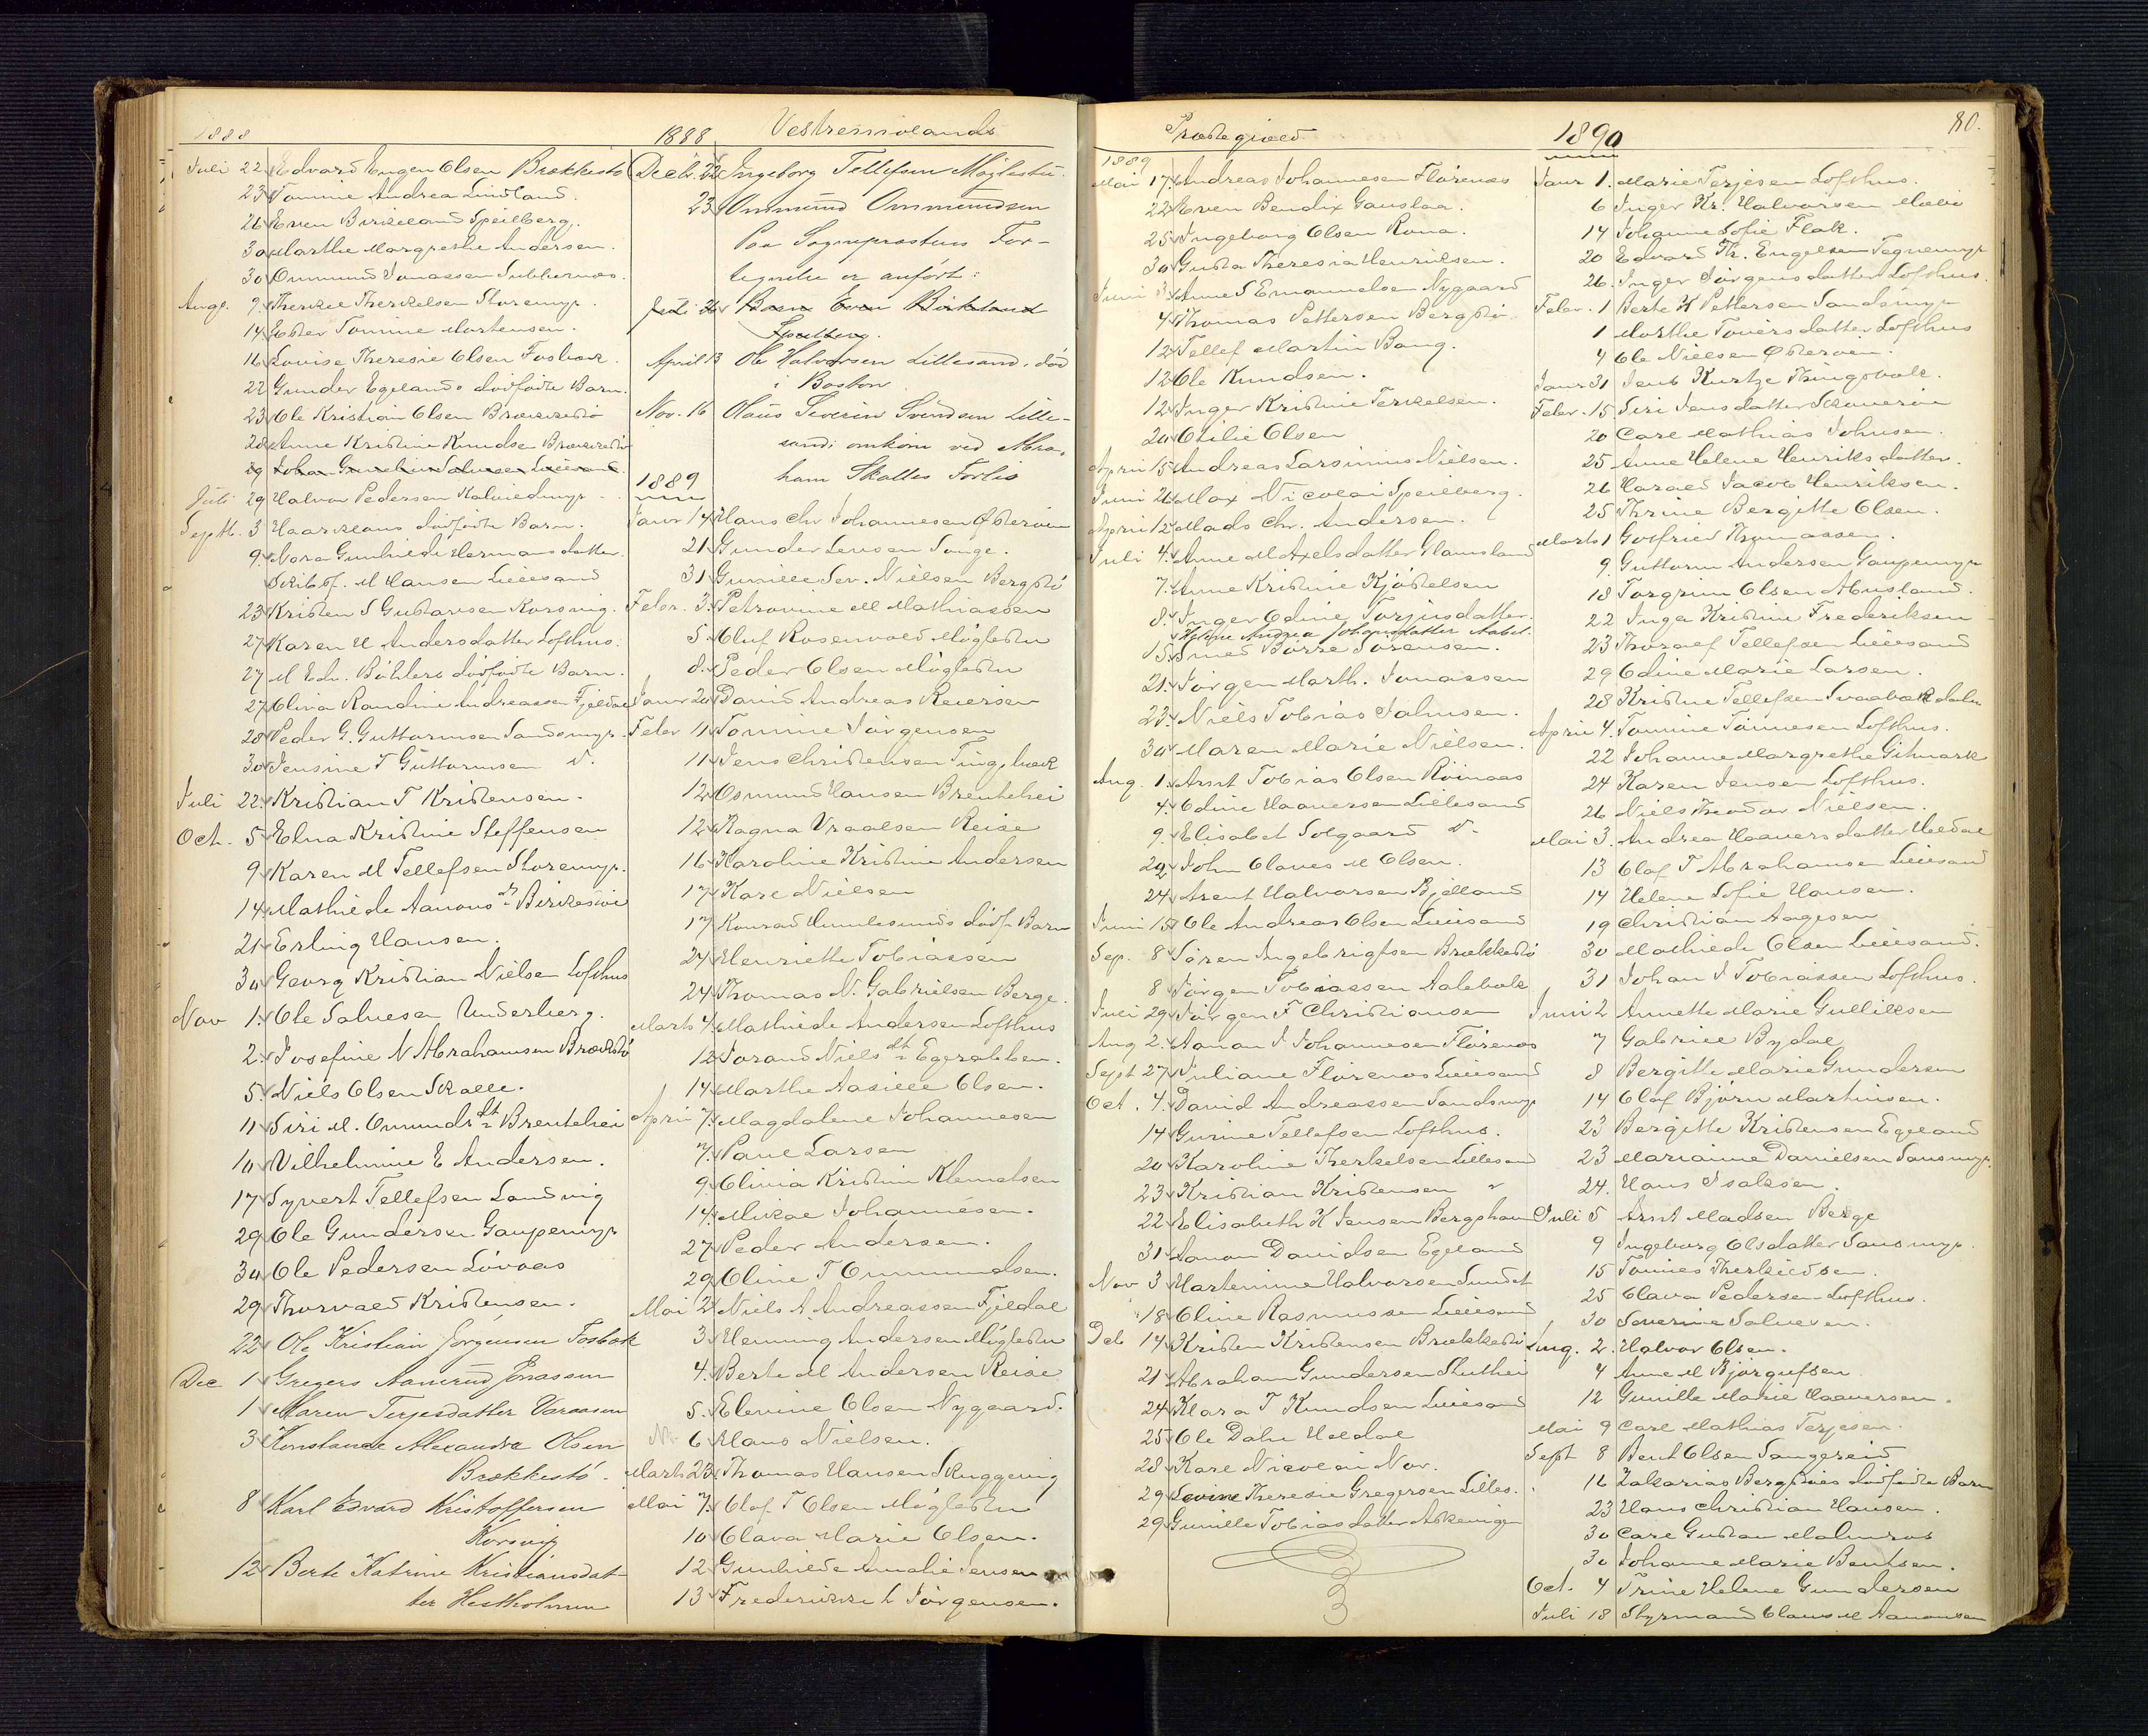 1888
Juli 22 Edvard Eugen Olsen Brækkestö
23 Tomine Andrea Lindland.
26 Even Birkeland Speilberg.
30 Marthe Margrethe Andersen.
30 Ommund Jonassen
Aug. 9. Therkel Therkelsen Storemyr.
14 Ester Tomine Mortensen.
16 Lovise Theresie Olsen Fosbæk.
22 Gunder Egelands dødfødte Barn.
23 Ole Kristian Olsen Brækkestö
28 Anne Kristine Knudsen Brækkestö
29
Juli 29 Halvor Pedersen Kalviedmyr
Septb. 3 Haaklaus dødfødte Barn.
9. Nora Gunhilde Hermansdatter.
Skibsf. M Hansen Lillesand
23 Kristen S Gustavsen Korsvig.
27 Karen M Andersdatter Lofthus.
27 M Edv. Böhlers dødfødte Barn.
27 Olivia Randine Andreassen Fjeldal
28 Peder G. Guttormsen Sandsmyr.
30 Jensine T Guttormsen d.
Juli 22. Kristian T Kristensen.
Oct. 5 Elna Kristine Steffensen
9 Karen M Tellefsen Storemyr.
14 Mathilde Aanons dt Birkesøie
21 Erling Hansen.
30 Georg Kristian Nielsen Lofthus
Nov 1. Ole Salvesen Underberg.
2. Josefine N Abrahamsen Brækstö
5. Niels Olsen Skalle.
11 Siri M. Omunds dt Brentehei
10 Vilhelmine E Andersen.
17 Syvert Tellefsen Landvig
29 Ole Gundersen Gaupemyr
30 Ole Pedersen Lövaas
29 Thorvald Kristensen.
22 Ole Kristian Jørgensen Fosbæk
Dec 1 Gregers Aamund Jonassen
1 Maren Terjesdatter Varaasen
3 Konstance Alexandra Olsen
Brækkestö.
8 Karl Edvard Kristoffersen
Korsvig
12 Berte Katrine Kristiansdat-
ter Hestholmen
1888 Vestremolands
Decb. 22 Ingeborg Tellefsen Møglestu.
23 Ommund Ommundsen
Paa Sogneprestens For-
tegnelse er anført:
Juli 26 Even Birkeland
Speilberg.
April 13 Ole Halvorsen Lillesand, død
i Boston
Nov. 16 Olaus Severin Svendsen Lille-
sand; omkom ved Abra-
ham Skalles Forlis
1889
Janr 14 Hans Chr Johannesen Østerøien
21 Gunder Jensen Songe.
31 Gunille Sev. Nielsen Bergstö
Febr. 3. Petronine M Mathiassen
5 Oluf Rosenvold Møglestu
8. Peder Olsen Møglestu
Janr 20 David Andreas Reiersen
Febr 11 Tomine Jørgensen
11 Jens Christensen Tingsbæk
12 Osmund Hansen Brentehei
12 Ragna Vraalsen Reise
16 Karoline Kristine Andersen
17 Karl Nielsen
17 Konrad Humlesunds dødf. Barn
24 Henriette Tobiassen
24 Thomas N. Gabrielsen Berge.
Marts 4 Mathilde Andersen Lofthus
12 Jorand Niels dt Egerabben.
14 Marthe Aasille Olsen.
April 7. Magdalene Johannesen
7. Paul Larsen
9. Olivia Kristine Klemetsen
14. Mikal Johannesen.
27 Peder Andersen.
29 Oline T Ommundsen.
Mai 2 Niels A Andreassen Fjeldal
3 Henning Andersen Møglestu
4. Berte M Andersen Reise
5. Elevine Olsen Nygaard.
6 Hans Nielsen.
Marts 23 Thomas Hansen Skuggevig
Mai 7. Olaf T Olsen Møglestu
10 Olava Marie Olsen.
12 Gunhilde Amalie Jensen
13 Frederikke L Jørgensen.
Præstegjæld.
1889
Mai 17. Andreas Johannesen Flørenæs
22 Even Bendix Gauslaa.
25 Ingeborg Olsen Rona.
30 Gusta Theresia Henriksen.
Juni 3. Anne S Emanuelsen Nygaard
4 Thomas Pettersen Bergstö
12 Tellef Martin Bang.
12 Ole Knudsen.
12 Inger Kristine Terkelsen.
20 Otilie Olsen
April 15 Andreas Larsinius Nielsen.
Juni 26 Max Nicolai Speilberg.
April 12 Mads Chr. Andersen.
Juli 4. Anne M Axelsdatter Glamsland
7. Anne Kristine Kjøstelsen
8. Inger Odine Torjusdatter.
Helene Andrea Johansdatter Aabel.
15. Smed Børre Sørensen.
21. Jørgen Marth. Jonassen
23. Niels Tobias Salmsen.
30 Maren Marie Nielsen.
Aug. 1. Arnt Tobias Olsen Röinaas
4. Odine Haaversen Lillesand
9. Elisabet Solgaard d.
22 John Olaves M Olsen.
24 Arent Halvorsen Bjelland
Juni 15 Ole Andreas Olsen Lillesand
Sep. 8 Søren Ingebrigtsen Brækkestö
8 Jørgen Tobiassen Aalebæk
Juli 29 Jørgen F Christiansen
Aug 2. Aanon J Johannesen Flørenæs
Sept 27 Juliane Florenæs Lillesand
Oct. 4. David Andreassen Sandsmyr
14 Gurine Tellefsen Lofthus.
20 Karoline Therkelsen Lillesand
23 Kristian Kristensen "
22 Elisabeth K Jensen Bergshavn
31 Aanon Davidsen Egeland
Nov 3 Martenine Halvorsen Sundet
18 Oline Rasmussen Lillesand
Deb 14 Kristen Kristensen Brækkestö
21 Abraham Gundersen Stuthei
24 Klara T Knudsen Lillesand
25 Ole Dahl Heldal
28 Karl Nicolai Nov.
29 Lovine Theresie Gregersen Lilles.
29 Gunille Tobiasdatter
3
1890 80.
Janr 1. Marie Terjesen Lofthus.
6 Inger Kr. Halvorsen Mæbö
14 Johanne Sofie Flak.
20 Edvard Th. Engelsen Tegnemyr
26. Inger Jørgensdatter Lofthus.
Febr. 1 Berte K Pettersen Sandsmyr
1 Marthe Toversdatter Lofthus
4 Ole Nielsen Østerøien.
Janr 31 Jens Kurtze Thingsbæk.
Febr. 15. Siri Jensdatter Skauerøie
20 Carl Mathias Johnsen.
25 Anne Helene Henriksdatter.
26 Harald Jacob Henriksen.
25 Thrine Bergitte Olsen.
Marts 1 Gotfried Thomassen.
9. Guttorm Andersen Gaupemyr
18 Torgrim Olsen Abusland.
22 Inga Kristine Frederiksen
23 Thoralf Tellefsen Lillesand
29 Odine Marie Larsen.
28 Kristine Tellefsen Svaabækdalen
April 4. Tomine Tønnesen Lofthus.
22 Johanne Margrethe Gitmark
24 Karen Jensen Lofthus.
26 Niels Theodor Nielsen.
Mai 3. Andrea Haaversdatter Heldal
13 Olaf T Abrahamsen Lillesand
14 Helene Sofie Hansen.
19 Christian Aagesen
30 Mathilde Olsen Lillesand.
31 Johan J Tobiassen Lofthus.
Juni 2 Annette Marie Gulliksen
7 Gabriel Bydal
8 Bergitte Marie Gundersen
14 Olaf Bjørn Martinsen.
23 Bergitte Kristensen Egeland
23 Marianne Danielsen Sansmyr.
24. Hans Isaksen.
Juli 5 Arnt Madsen Berge
9 Ingeborg Olsdatter Sansmyr.
15 Tomies Therkildsen.
25 Olava Pedersen Lofthus.
30 Severine Salvesen.
Aug. 2. Halvor Olsen.
4 Anne M Bjørgufsen
12 Gunille Marie Haaversen.
Mai 9 Carl Mathias Terjesen.
Sept 8 Bent Olsen Sangereid
16 Zakarias Bergstøes dødfødte Barn
23 Hans Christian Hansen.
30 Carl Gustav Malmros
30 Johanne Marie Bentsen.
Oct. 4 Trine Helene Gundersen
Juli 18 Styrmand Claus M Aanonsen